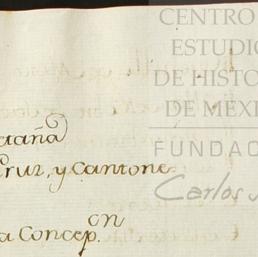 CENTRO
ESTUDIO
DE HISTO
DE MÉXI
FUNDAC
Carlos
taña
Cruz, y Cantone
a Concep.on